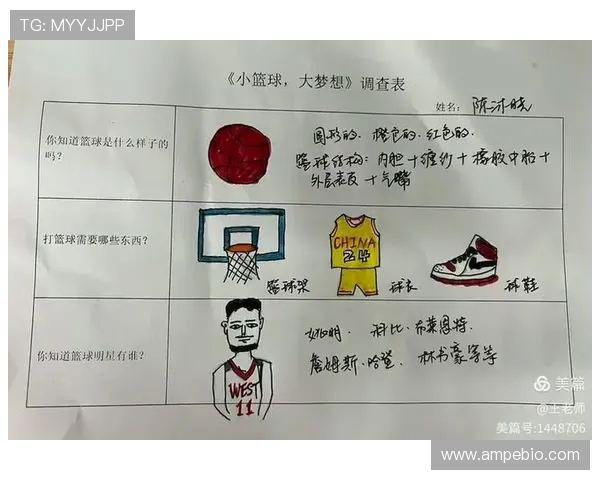 TG: MYYJJPP
《小篮球，大梦想》调查表
姓名：陈沐晓
你知道篮球是什么样子的
吗？
圆形的、橙色的、红色的.
篮球结构：内胆＋缠纱＋橡胶中胎＋
外层表皮＋气嘴
打篮球需要哪些东西？
CHINA
24
篮球架
球衣
球鞋
你知道篮球明星有谁？
WEST
11
姚明、科比·布莱恩特、
詹姆斯·哈登、林书豪等等
美篇
@王老师
美篇号:1448706
www.ampebio.com